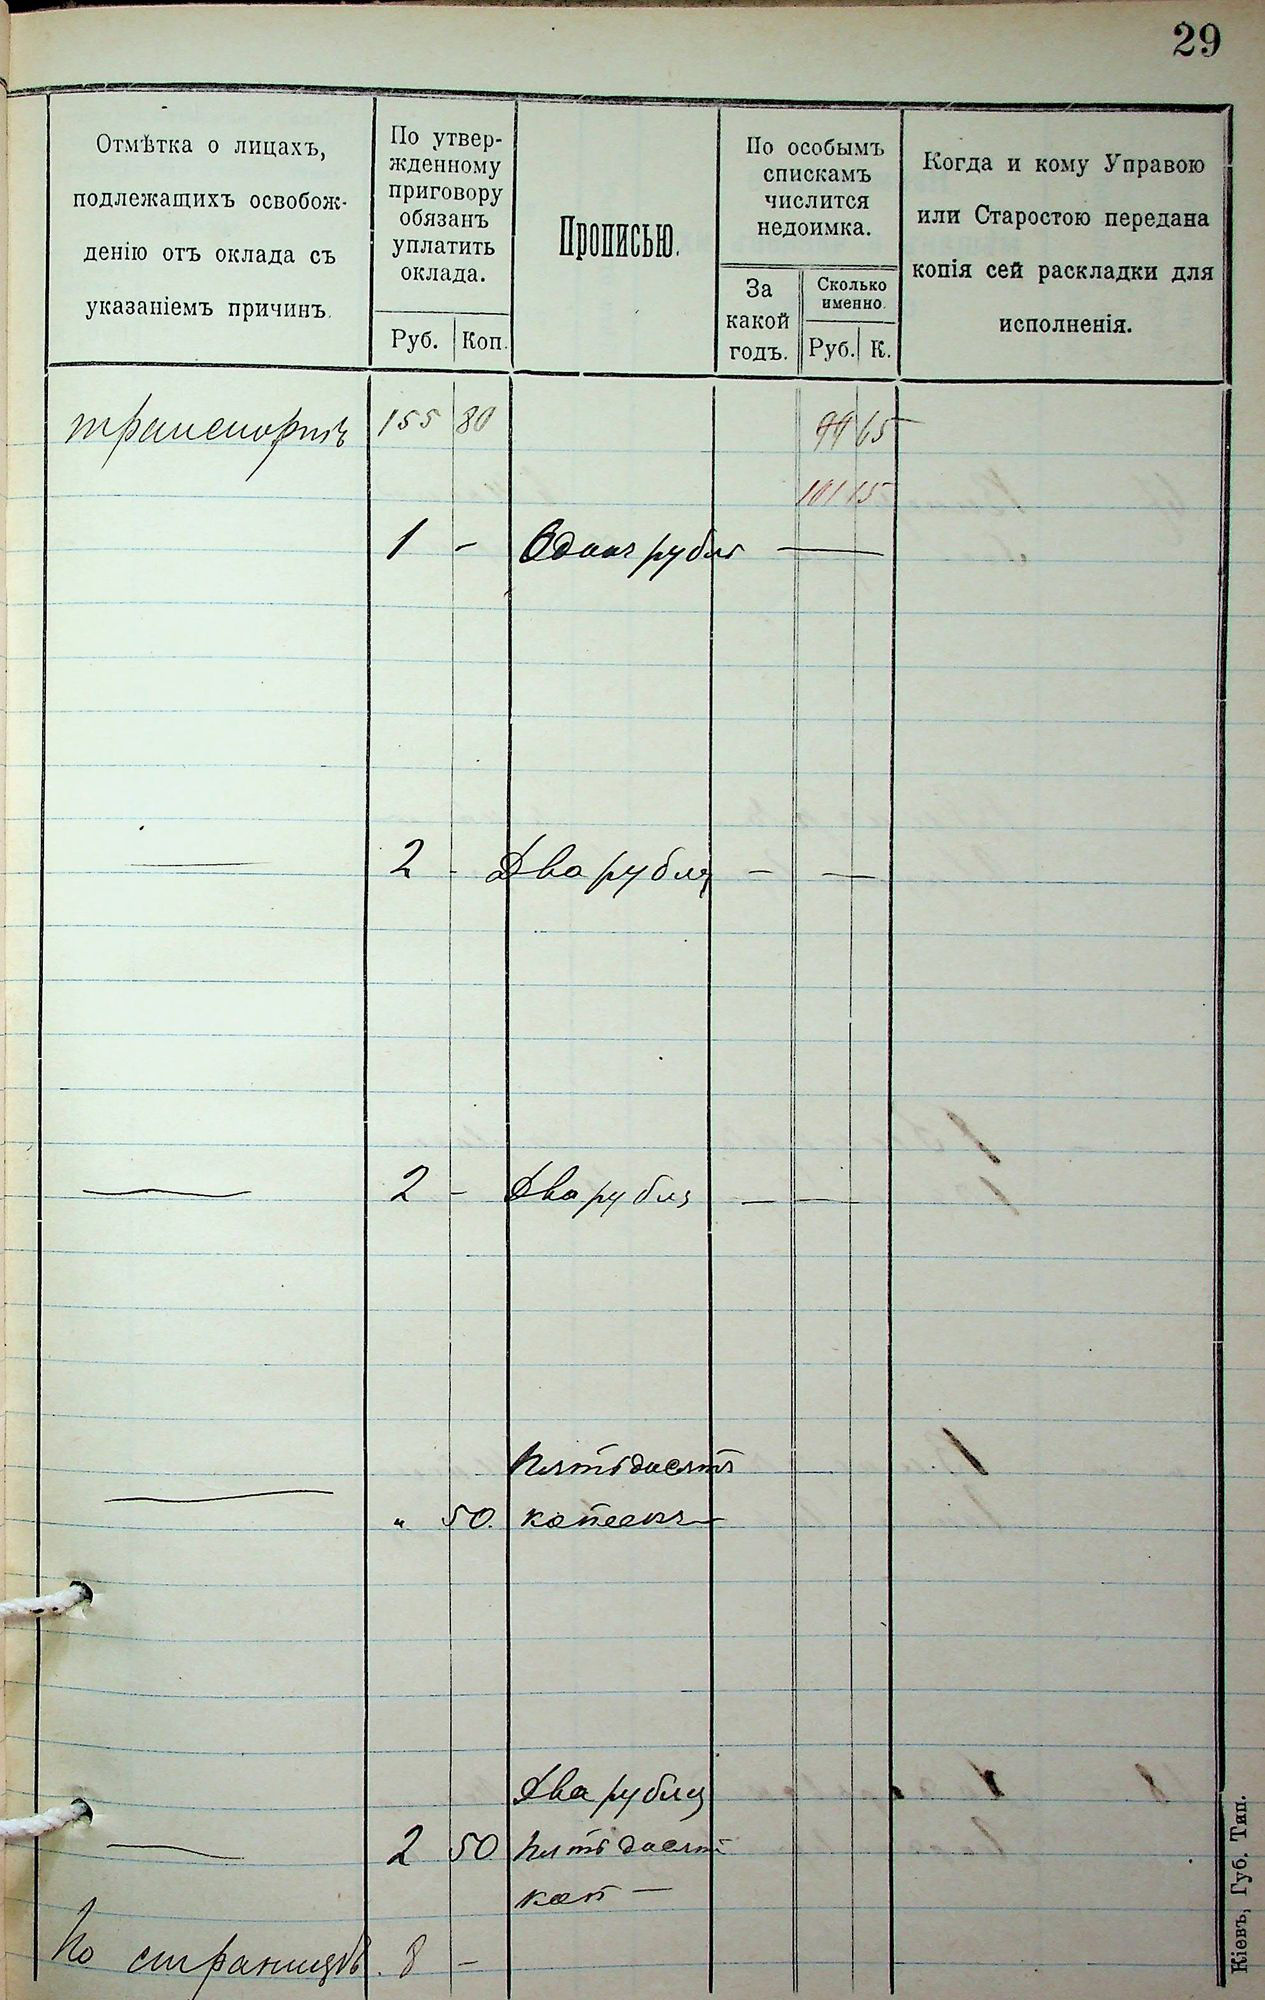 29
Отмѣтка о лицахъ,
подлежащихъ освобож-
денію отъ оклада съ
указаніемъ причинъ.
По утвер-
жденному
приговору
обязанъ
уплатить
оклада.
Руб. Коп.
Прописью.
По особымъ
спискамъ
числится
недоимка.
За
какой
годъ.
Сколько
именно.
Руб. К.
Когда и кому Управою
или Старостою передана
копія сей раскладки для
исполненія.
транспортъ 155 80 99 65
101 15
1 - Одинъ рубль —
— 2 - Два рубля — —
— 2 - Два рубля — —
Пятьдесятъ
— " 50. копеекъ —
Два рубля
— 2 50 Пятьдесят
коп —
По страницѣ. 8 -
Кіевъ, Губ. Тип.